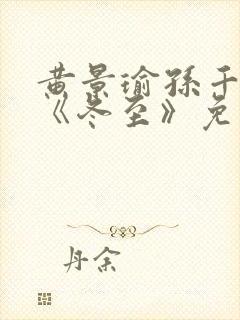 黄景瑜孙千
《冬至》免
丹余